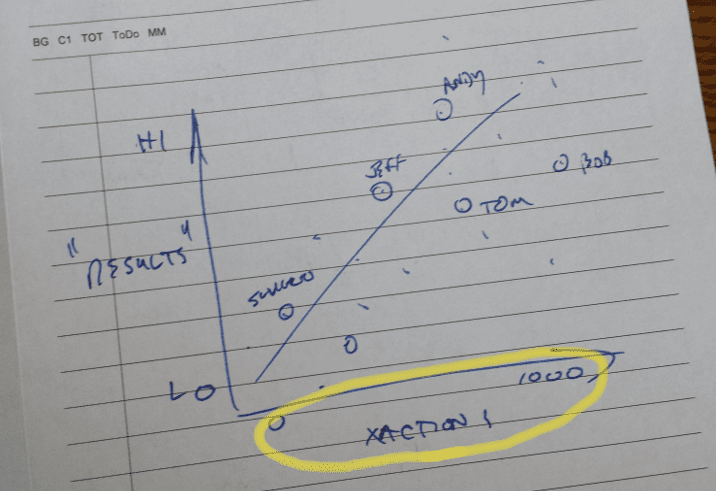 BG C1 TOT ToDo MM
ANDY
HI
JEFF
BOB
TOM
"RESULTS"
LO
1000
0
XACTIONS